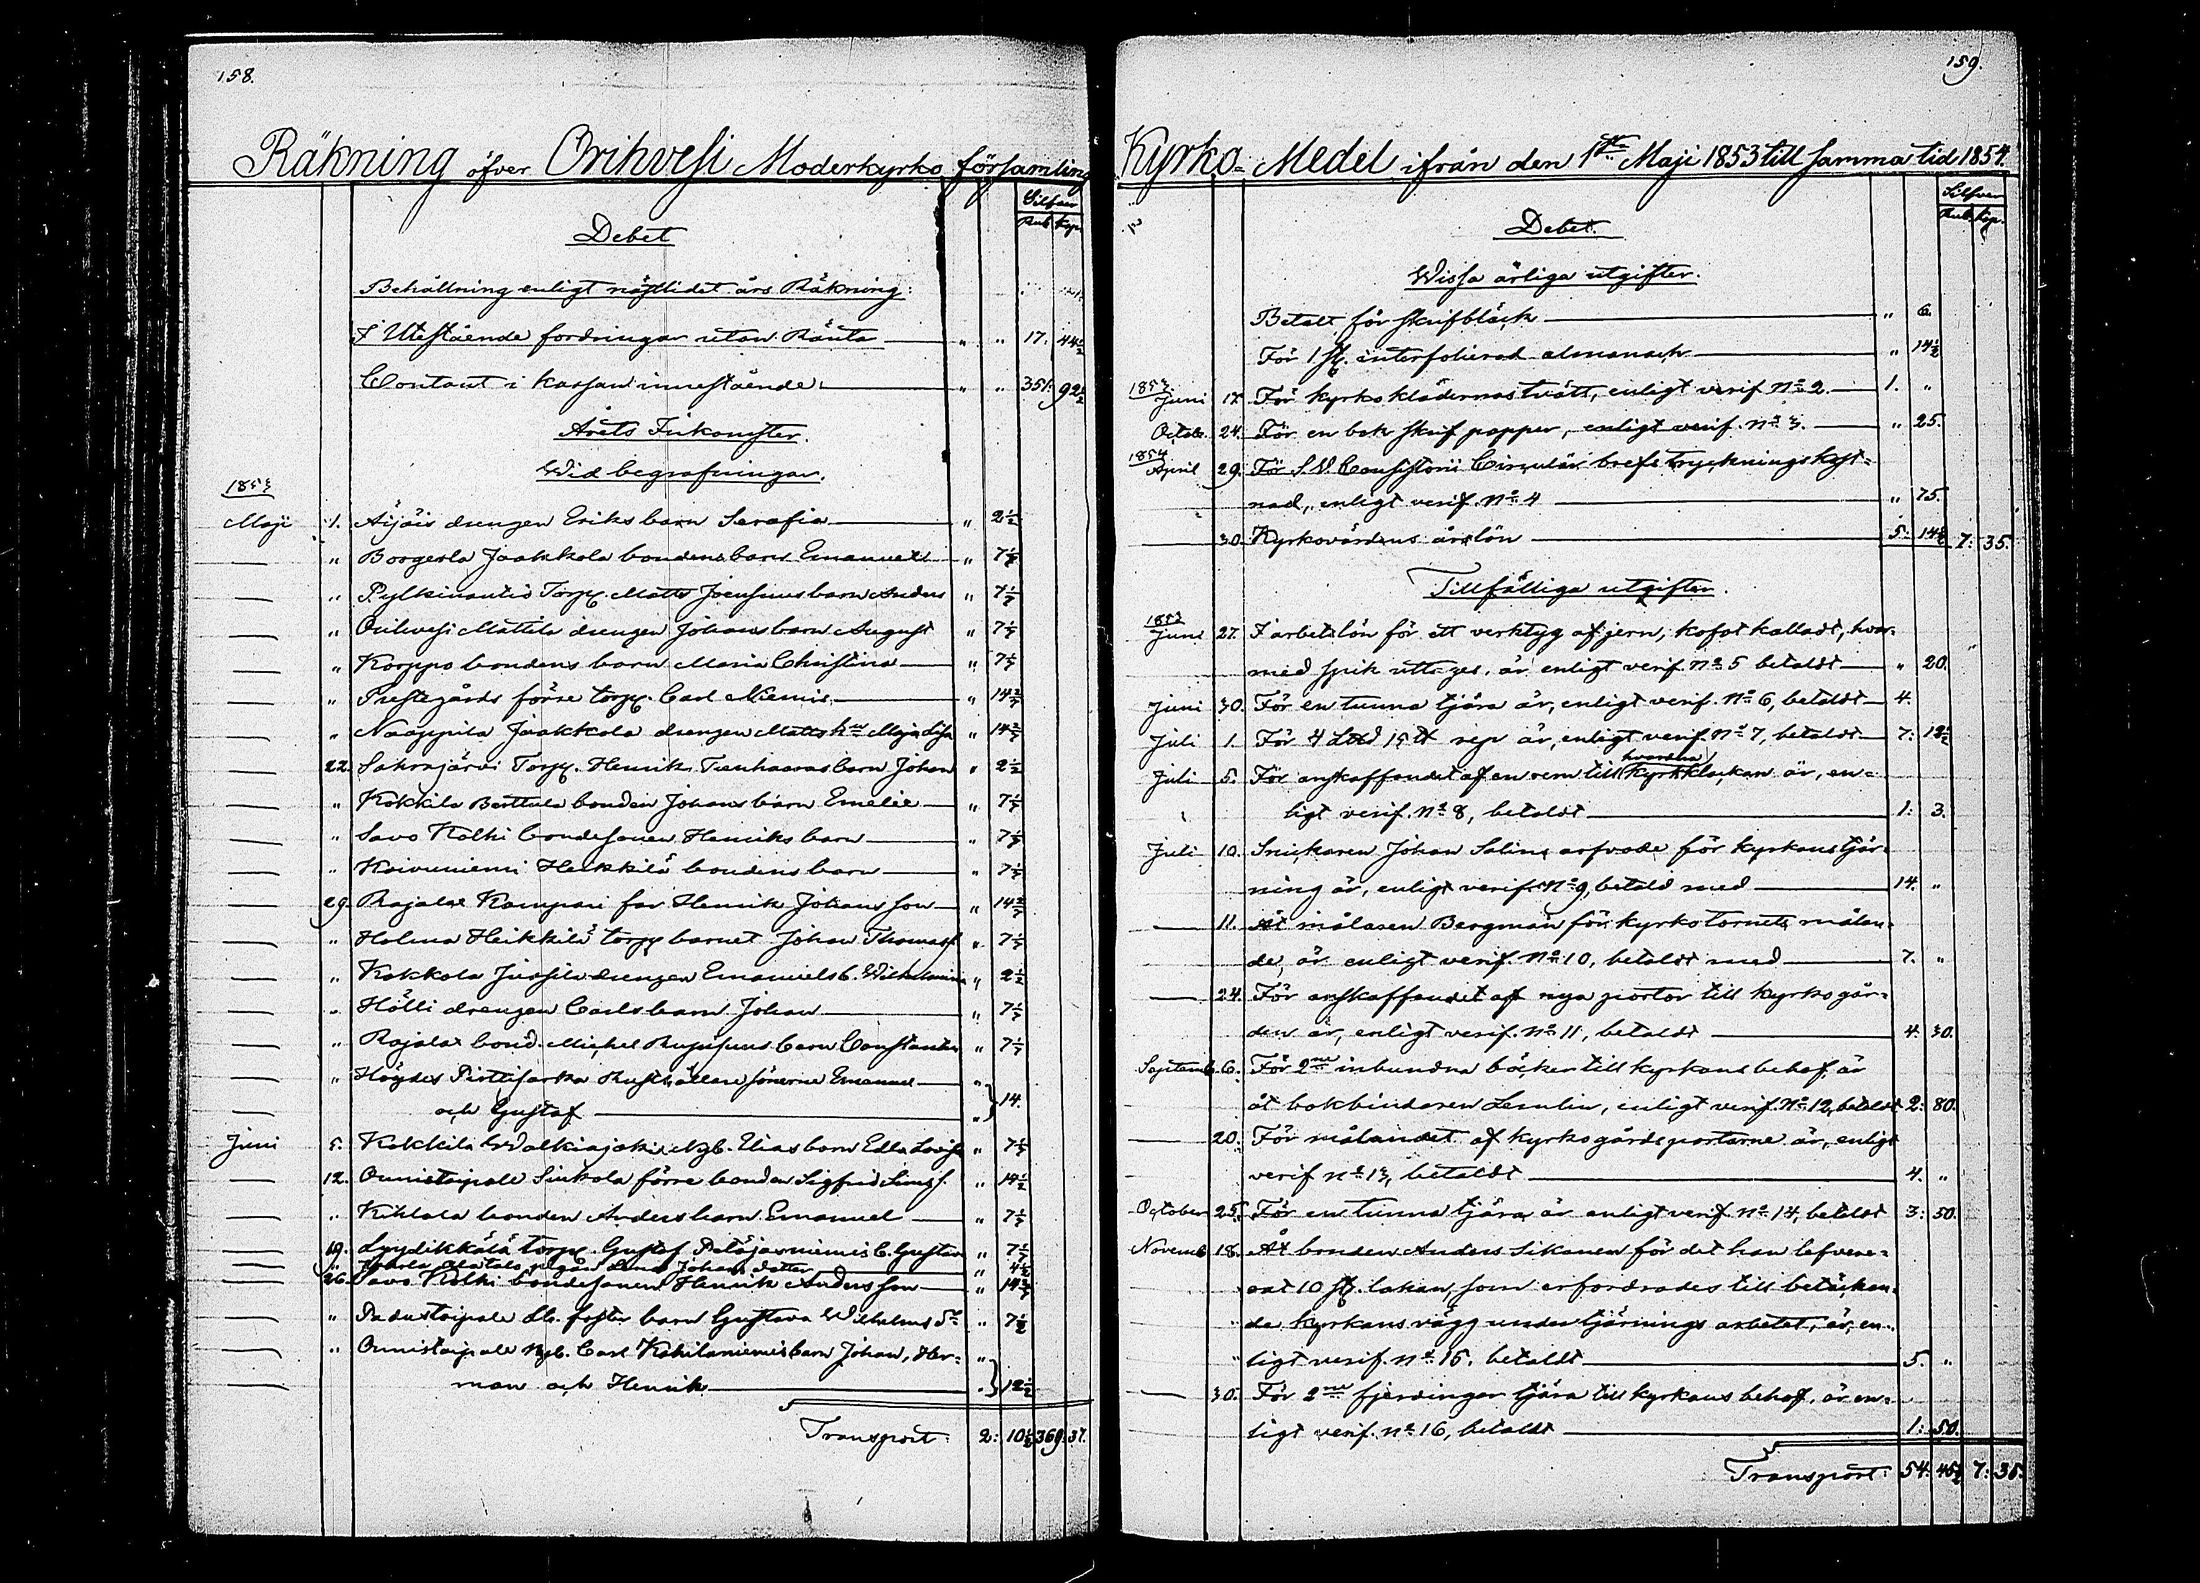 158.
Räkning öfver Orihvesi Moderkyrko församling
Silfver
Rub. Kop.
Debet
Behållning enligt nästlidet års Räkning:
I Utestående fordringar utan Ränta " " 17. 44½
Contant i kassan innestående " " 351. 92½
Årets Inkomster.
Wid begrafningar.
1853
Maji 1. Äijäis drengen Eriks barn Serafia " 2½
" Borgerla Jaakkola bondens barn Emanuel " 7½
" Pylkinantio Torp. Matts Joensuus barn Anders " 7½
" Orihvesi Mattila drengen Johans barn August " 7½
" Korppo bondens barn Maria Christina " 7½
" Prestegårds förre torp. Carl Niemis " 14½
" Naappila Jaakkola drengen Matts h:u Maja Lisa " 14½
22. Sakrajärvi Torp. Henrik Tenhavas barn Johan " 2½
" Kokkila Berttula bonden Johans barn Emelie " 7½
" Savo Kolhi bondesonen Henriks barn " 7½
" Koivuniemi Heikkilä bondens barn " 7½
29. Rajalax Kampari far Henrik Johansson " 14½
" Holma Heikkilä torp barnet Johan Thomass. " 7½
" Kokkola Jussila drengen Emanuels b. Wilhelmina " 2½
" Hölli drengen Carls barn Johan " 7½
" Rajalax bond. Michel barn Constantin " 7½
" Höydes Pirttisarka Rusthållare sönerna Emanuel "
och Gustaf " } 14.
Juni 5. Kokkila Walkiajoki Nyb. Elias barn Edla Lovisa " 7½
12. Onnistaipale Sinkola förre bonden Sigfrid Simss. " 14½
" Kihlola bonden Anders barn Emanuel " 7½
19. Lyydikkälä torp. Gustaf b. Gustava " 7½
" Johans dotter " 4½
26. Savo Kolhi bondesonen Henrik Andersson " 14½
" Padustaipale foster barn Gustava Wilhelms Dr " 7½
" Onnistaipale Nyb. Carl Kohilaniemis barn Johan, Her- "
man och Henrik " } 12½
Transport 2: 10½ 369. 37.
159.
Kyrko-Medel ifrån den 1sta Maji 1853 till samma tid 1854.
Silfver
Rub. Kop.
Debet.
Wissa årliga utgifter.
Betalt för skrifbläck " 6.
För 1 st. interfolierad almanach " 14½
1853
Juni 17. För kyrkoklädernas tvätt, enligt verif. No 2. 1. "
Octob. 24. För en bok skrif papper, enligt verif. No 3. " 25.
1854
April 29. För S. V. Consistorii Circulär brefs tryckningskost-
nad, enligt verif. No 4 " 75.
30. Kyrkovärdens årslön 5: 14½ 7: 35.
Tillfälliga utgifter.
1853
Juni 27. I arbetslön för ett verktyg af jern, kofot kalladt, hvar-
med spik uttages, är enligt verif. No 5 betaldt " 20.
Juni 30. För en tunna tjära är, enligt verif. No 6, betaldt 4.
Juli 1. För 4 Lttd 15 tt rep är, enligt verif. No 7, betaldt 7: 12½
Juli 5. För anskaffandet af en rem till hvardera kyrkklockan är, en-
ligt verif. No 8, betaldt 1: 3.
Juli 10. Snickaren Johan Salins arfvode för kyrkans tjär-
ning är, enligt verif. No 9, betald med 14. "
11. Åt målaren Bergman för kyrkotornets målan-
de, är enligt verif. No 10, betaldt med 7. "
24. För anskaffandet af nya portor till kyrkogår-
den är, enligt verif. No 11, betaldt 4. 30.
Septemb. 6. För 2ne inbundna böcker till kyrkans behof, är
åt bokbindaren Lemlin, enligt verif. No 12, betaldt 2: 80.
20. För målandet af kyrkogårdsportarne är, enligt
verif No 13, betaldt 4. "
October 25. För en tunna tjära är enligt verif. No 14, betaldt 3: 50.
Novemb. 18. Åt bonden Anders Sikanen för det han lefvere-
rat 10 st. lakan, som erfordrades till betäckan-
de kyrkans vägg under tjärnings arbetet, är, en-
ligt verif. No 15. betaldt 5. "
30. För 2ne fjerdingar tjära till kyrkans behof, är en-
ligt verif. No 16, betaldt 1: 50.
Transport: 54. 45½ 7: 35.